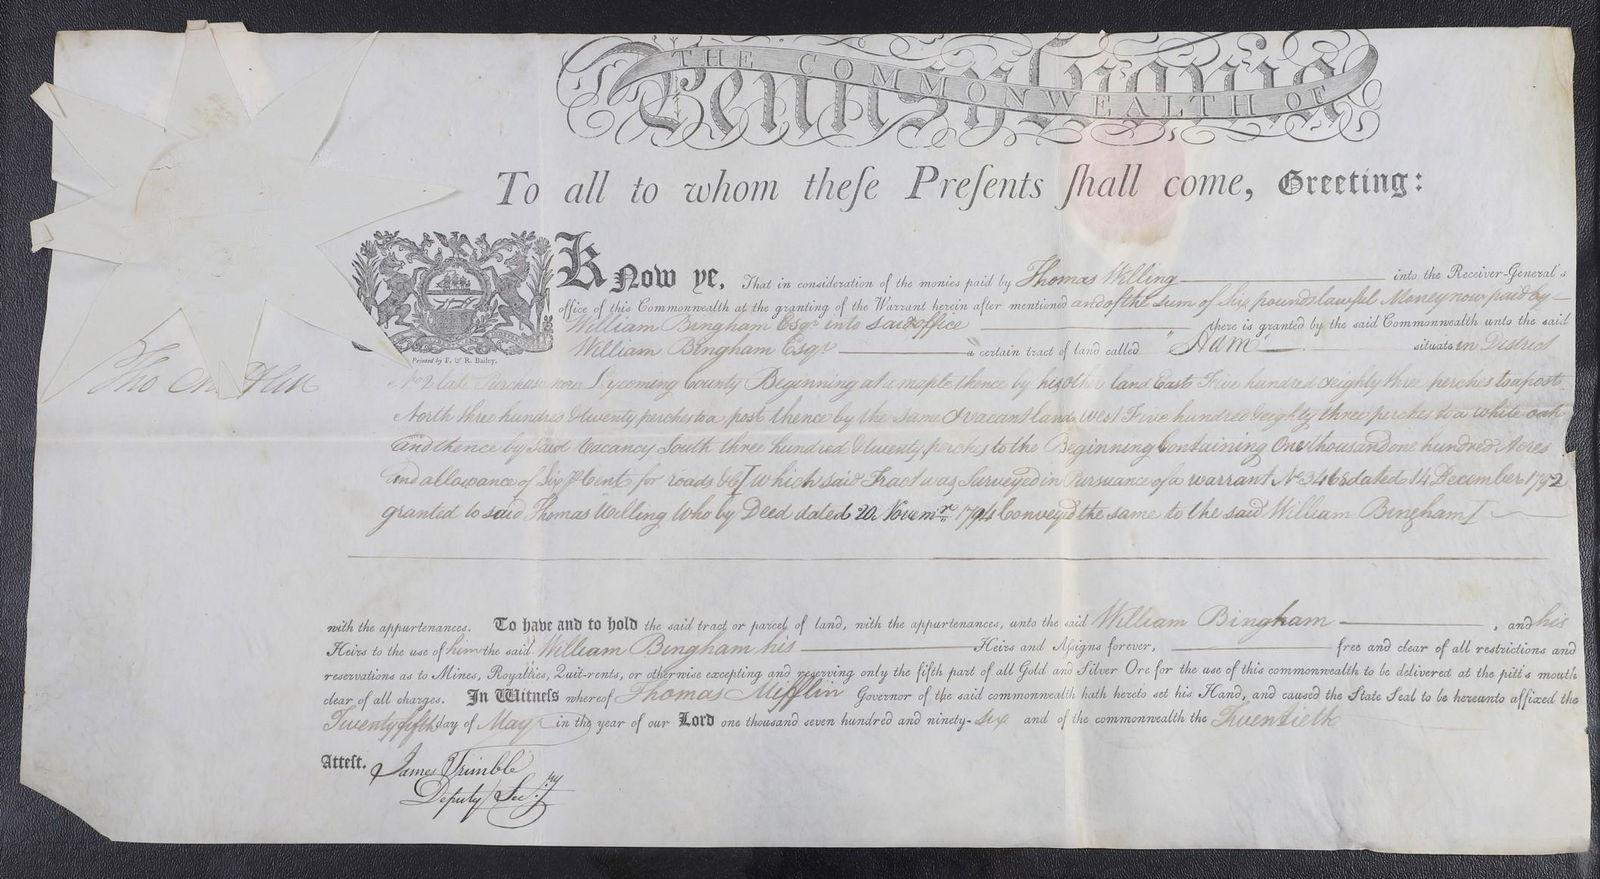 THE COMMONWEALTH OF
Pennsylvania
To all to whom theſe Preſents ſhall come, Greeting:
Know ye, That in consideration of the monies paid by Thomas Willing into the Receiver-General's
office of this Commonwealth at the granting of the Warrant herein after mentioned and of the sum of Six pounds lawful Money now paid by
William Bingham Esqr. into said office there is granted by the said Commonwealth unto the said
William Bingham Esqr. a certain tract of land called "Adam" situate in District
Printed by F. & R. Bailey.
Tho Mifflin
No 2 late Purchase now Lycoming County Beginning at a maple thence by his other land East Five hundred & eighty three perches to a post
North three hundred & twenty perches to a post thence by the same & vacant land West Five hundred & eighty three perches to a white oak
and thence by Said Vacancy South three hundred & twenty perches to the Beginning Containing One thousand one hundred Acres
and allowance of Six ⅌ Cent for roads &c [which said Tract was Surveyed in Pursuance of a warrant No dated 14 December 1792
granted to said Thomas Willing Who by Deed dated 20 Novemr. 1794 Convey'd the same to the said William Bingham]
with the appurtenances. To have and to hold the said tract or parcel of land, with the appurtenances, unto the said William Bingham , and his
Heirs to the use of him the said William Bingham his Heirs and Aſsigns forever, free and clear of all restrictions and
reservations as to Mines, Royalties, Quit-rents, or otherwise excepting and reserving only the fifth part of all Gold and Silver Ore for the use of this commonwealth to be delivered at the pit's mouth
clear of all charges. In Witneſs whereof Thomas Mifflin Governor of the said commonwealth hath hereto set his Hand, and caused the State Seal to be hereunto affixed the
Twenty fifth day of May in the year of our Lord one thousand seven hundred and ninety-six and of the commonwealth the Twentieth
Atteſt. James Trimble
Deputy Secry.